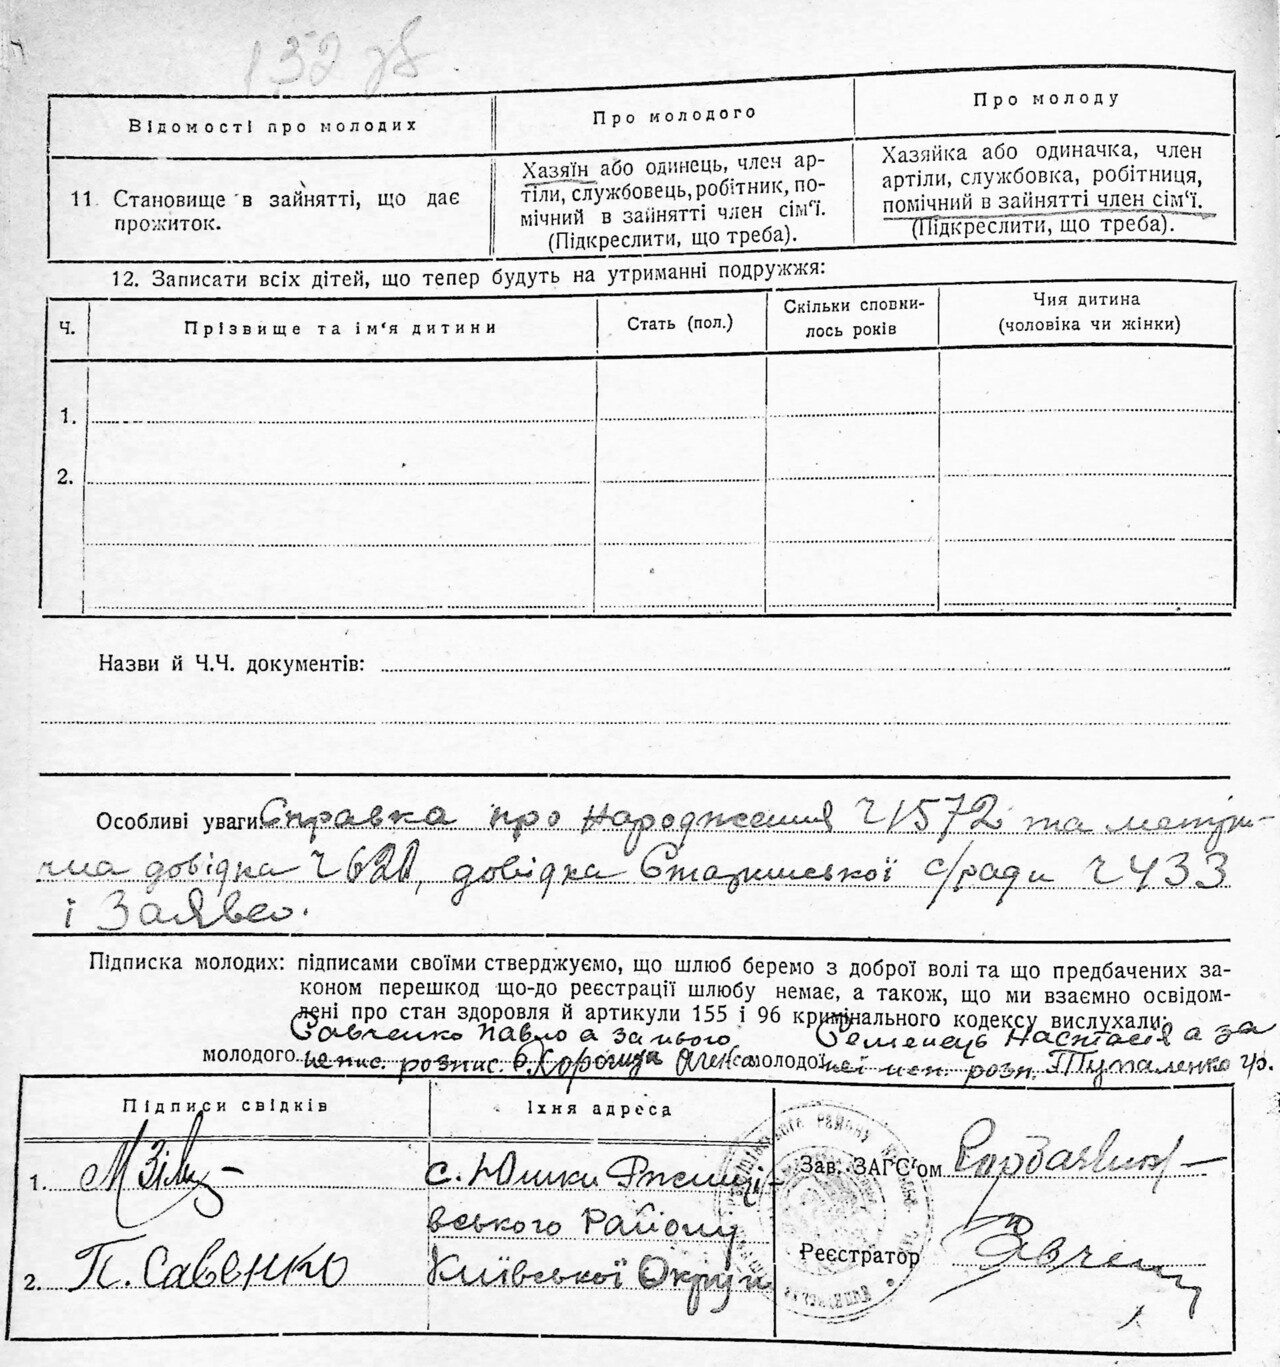 132 зв
Відомості про молодих
Про молодого
Про молоду
11. Становище в зайнятті, що дає
прожиток.
Хазяїн або одинець, член ар-
тіли, службовець, робітник, по-
мічний в зайнятті член сім'ї.
(Підкреслити, що треба).
Хазяйка або одиначка, член
артіли, службовка, робітниця,
помічний в зайнятті член сім'ї.
(Підкреслити, що треба).
12. Записати всіх дітей, що тепер будуть на утриманні подружжя:
Ч.
Прізвище та ім'я дитини
Стать (пол.)
Скільки сповни-
лось років
Чия дитина
(чоловіка чи жінки)
1.
2.
Назви й Ч.Ч. документів:
Особливі уваги Справка про народження Ч 1572 та метри-
чна довідка Ч 620, довідка с/ради Ч 433
і Заявео.
Підписка молодих: підписами своїми стверджуємо, що шлюб беремо з доброї волі та що предбачених за-
коном перешкод що-до реєстрації шлюбу немає, а також, що ми взаємно освідом-
лені про стан здоров'я й артикули 155 і 96 кримінального кодексу вислухали:
Савченко Павло а за нього
Семенець Настасія а за
молодого непис. розпис.
молодої неї неп. розп. Тумаленко Гр.
Підписи свідків
Їхня адреса
1.
с. Юшки Ржищі-
вського Району
2. П. Савенко
Київської Округи
Зав. ЗАГС'ом
Реєстратор